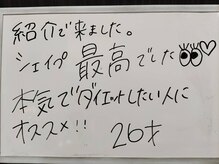 紹介で来ました。
シェイプ 最高でした
本気でダイエットしたい人に
オススメ!! 26才